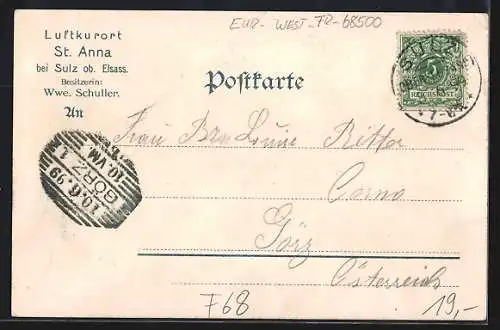 EUR-WEST-FR-68500
Luftkurort
St. Anna
bei Sulz ob. Elsass.
Besitzerin:
Wwe. Schuller.
An
Postkarte
SULZ
5
REICHSPOST
*7-8N.*
Frau Louise Ritter
Görz
Österreich
GÖRZ 1
10.6.99
10. VM.
F68
19,-